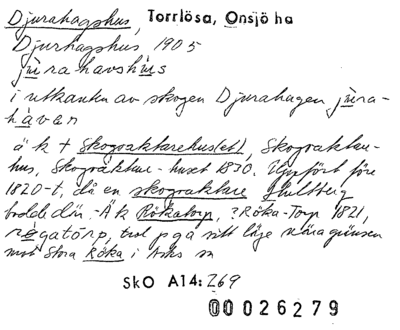 Djurahagshus, Torrlösa, Onsjö hd
Djurhagshus 1905
jùrahavshùs
i utkanten av skogen Djurahagen jùra-
hàvan
ä k t Skogvaktarehus(et), Skogvaktare-
hus, Skogvaktare-huset 1830. Uppfört före
1820-t, då en skogvaktare Hultberg
bodde där. Ä k Rökatorp, ?Röka-Torp 1821,
røgatòrp, trol p g a sitt läge nära gränsen
mot Stora Röka i Asks sn
SkO A14:269
00026279